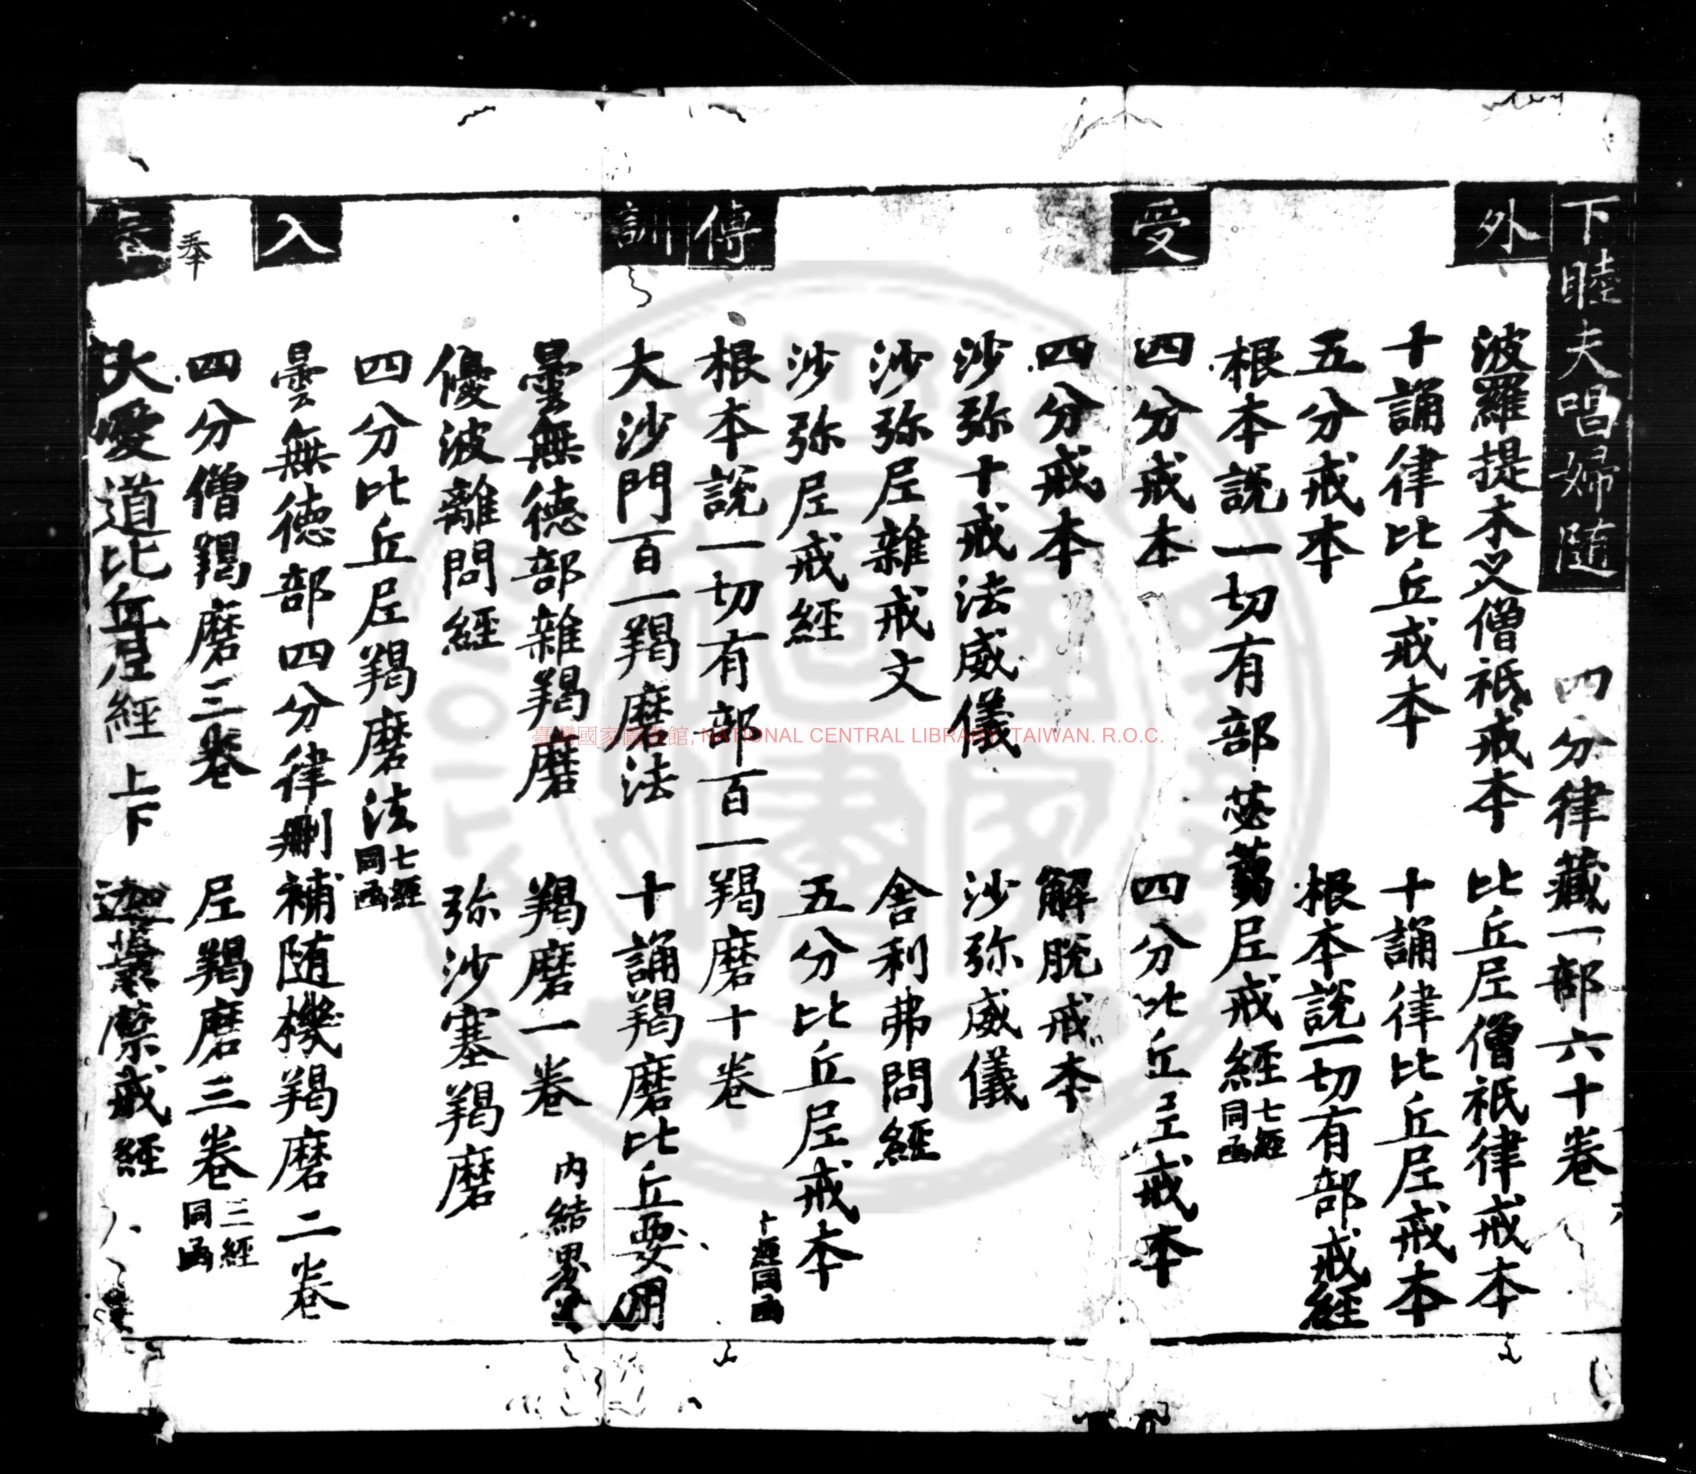 下睦夫唱婦随 四分律藏一部六十卷
外 波羅提木叉僧祇戒本 比丘尼僧祇律戒本
十誦律比丘戒本 十誦律比丘尼戒本
五分戒本 根本説一切有部戒経
根本説一切有部苾蒭尼戒經 七經同函
受 四分戒本 四分比丘尼戒本
四分戒本 解脱戒本
沙弥十戒法威儀 沙弥威儀
沙弥尼雜戒文 舎利弗問經
沙弥尼戒經 五分比丘尼戒本
傳 根本説一切有部百一羯磨十卷 十經同函
訓 大沙門百一羯磨法 十誦羯磨比丘要用
曇無德部雜羯磨 羯磨一卷 内結界
優波離問經 弥沙塞羯磨
四分比丘尼羯磨法 七經同函
入 曇無德部四分律删補随機羯磨二卷
奉 四分僧羯磨三卷 尼羯磨三卷 三經同函
大愛道比丘尼經 上下 迦葉禁戒經
臺灣國家圖書館, NATIONAL CENTRAL LIBRARY, TAIWAN. R.O.C.